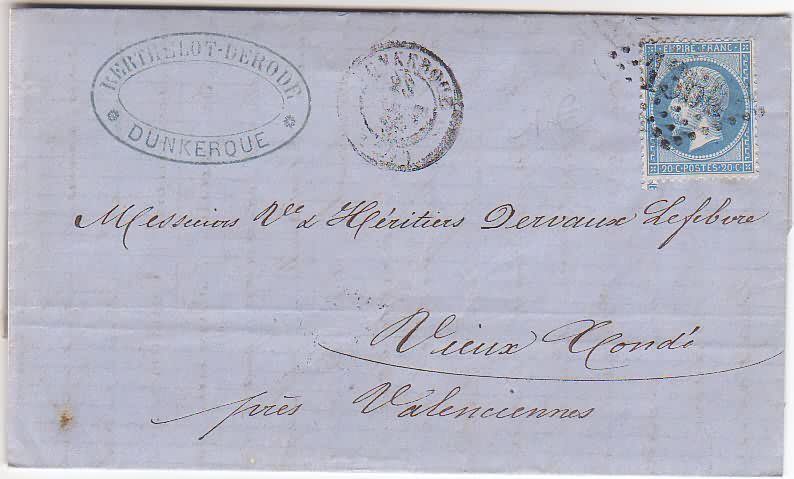 BERTHELOT-DERODE
DUNKERQUE
DUNKERQUE
EMPIRE FRANC
20 C POSTES 20 C
Messieurs Vve & Héritiers Dervaux Lefebvre
Vieux Condé
près Valenciennes